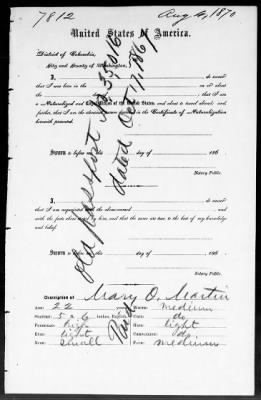 7812
Aug 6, 1870
United States of America.
District of Columbia,
City and County of Washington,
I, do swear
that I was born in the on or about
the day of ; that I am
a Naturalized and Citizen of the United States, and about to travel abroad; and
further, that I am the described in the Certificate of Naturalization
herewith presented.
Sworn to before me this day of 186 .
Notary Public.
I, do swear
that I am acquainted with the above-named and
with the facts above stated by him, and that the same are true to the best of my knowledge
and belief.
Sworn to before me this day of 186 .
Notary Public.
old passport No. 33,016
dated Oct 17, 1867
Paid
Description of Mary O. Martin
Age: 22
Mouth: medium
Stature: 5 ft 6 inches, Eng.
Chin: do
Forehead: high
Hair: light
Eyes: light
Complexion: do.
Nose: small
Face: medium